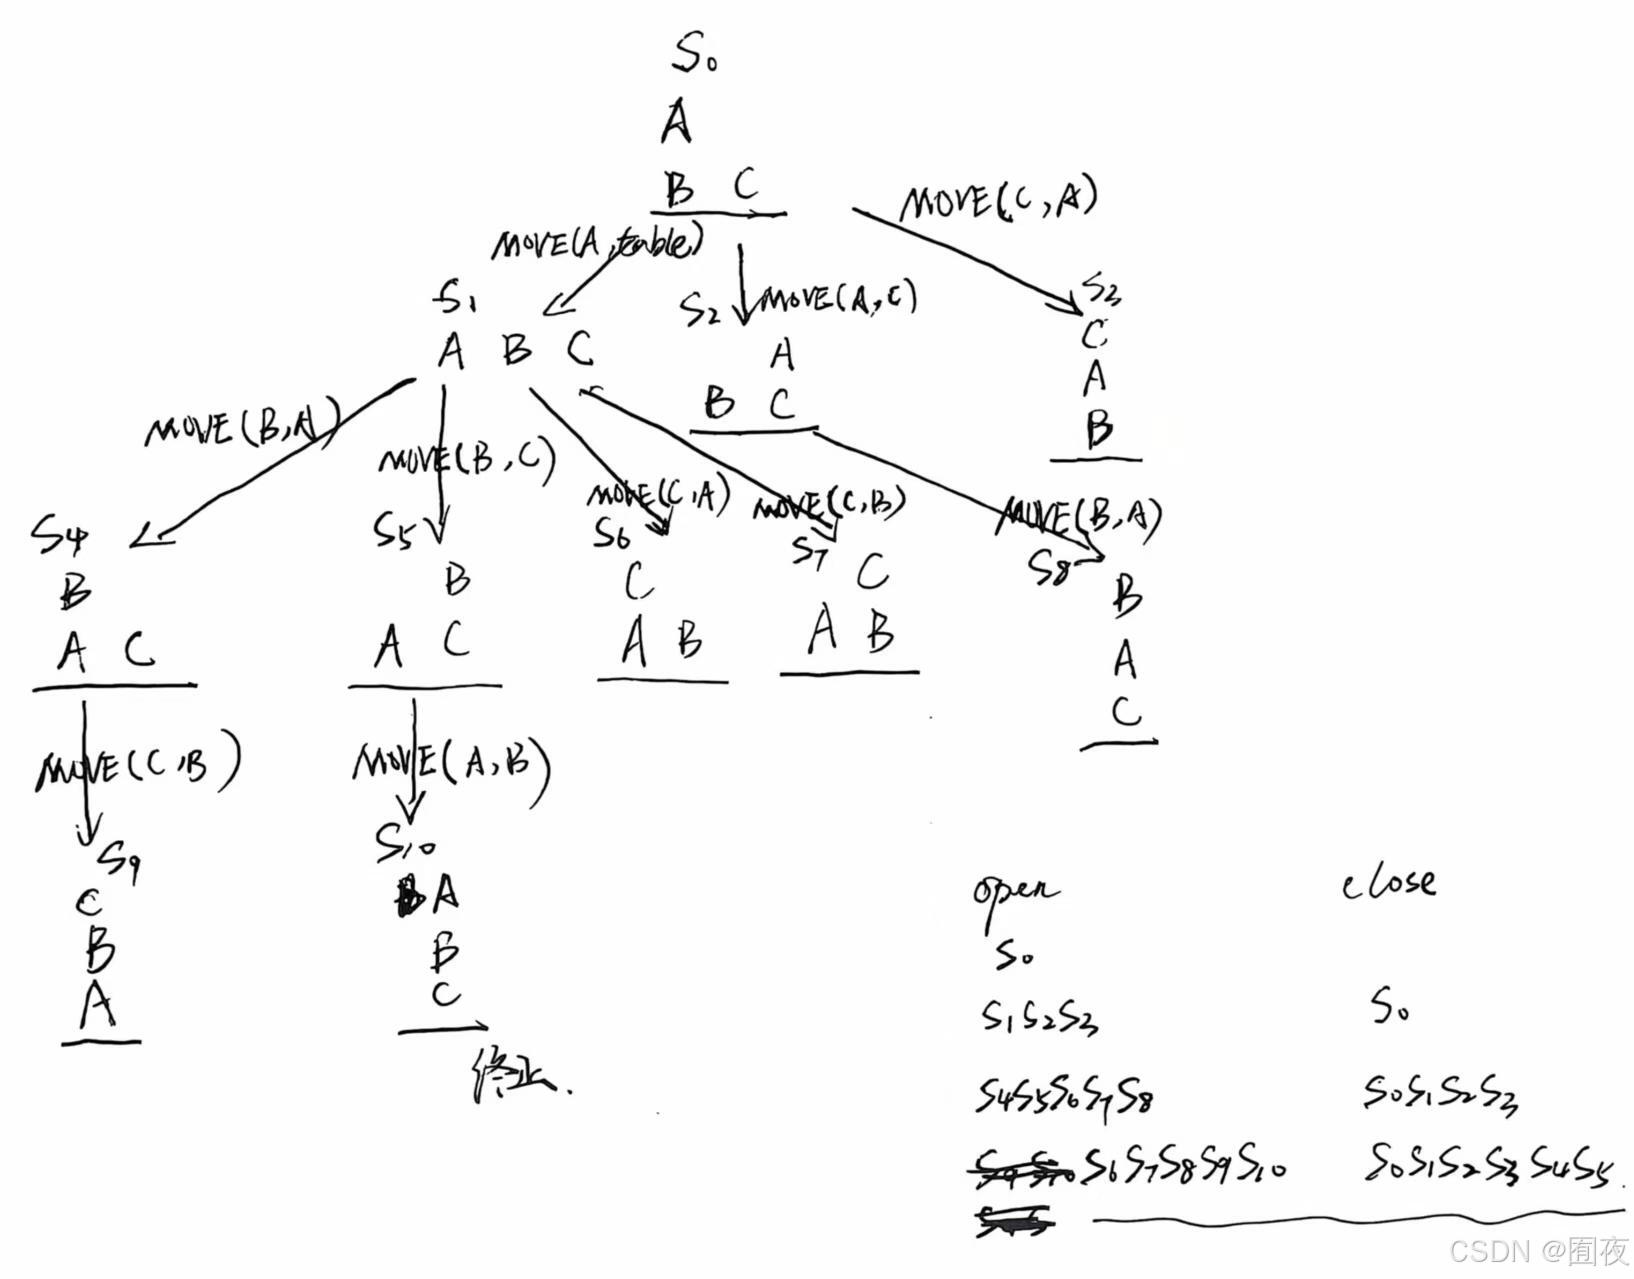 S0
A
B C
MOVE(A,table)
MOVE(C,A)
S1
A B C
S2
MOVE(A,C)
A
B C
S3
C
A
B
MOVE(B,A)
MOVE(B,C)
MOVE(C,A)
MOVE(C,B)
MOVE(B,A)
S4
B
A C
S5
B
A C
S6
C
A B
S7
C
A B
S8
B
A
C
MOVE(C,B)
MOVE(A,B)
S9
C
B
A
S10
A
B
C
终止.
open close
S0
S1S2S3 S0
S4S5S6S7S8 S0S1S2S3
S6S7S8S9S10 S0S1S2S3S4S5.
CSDN @囿夜